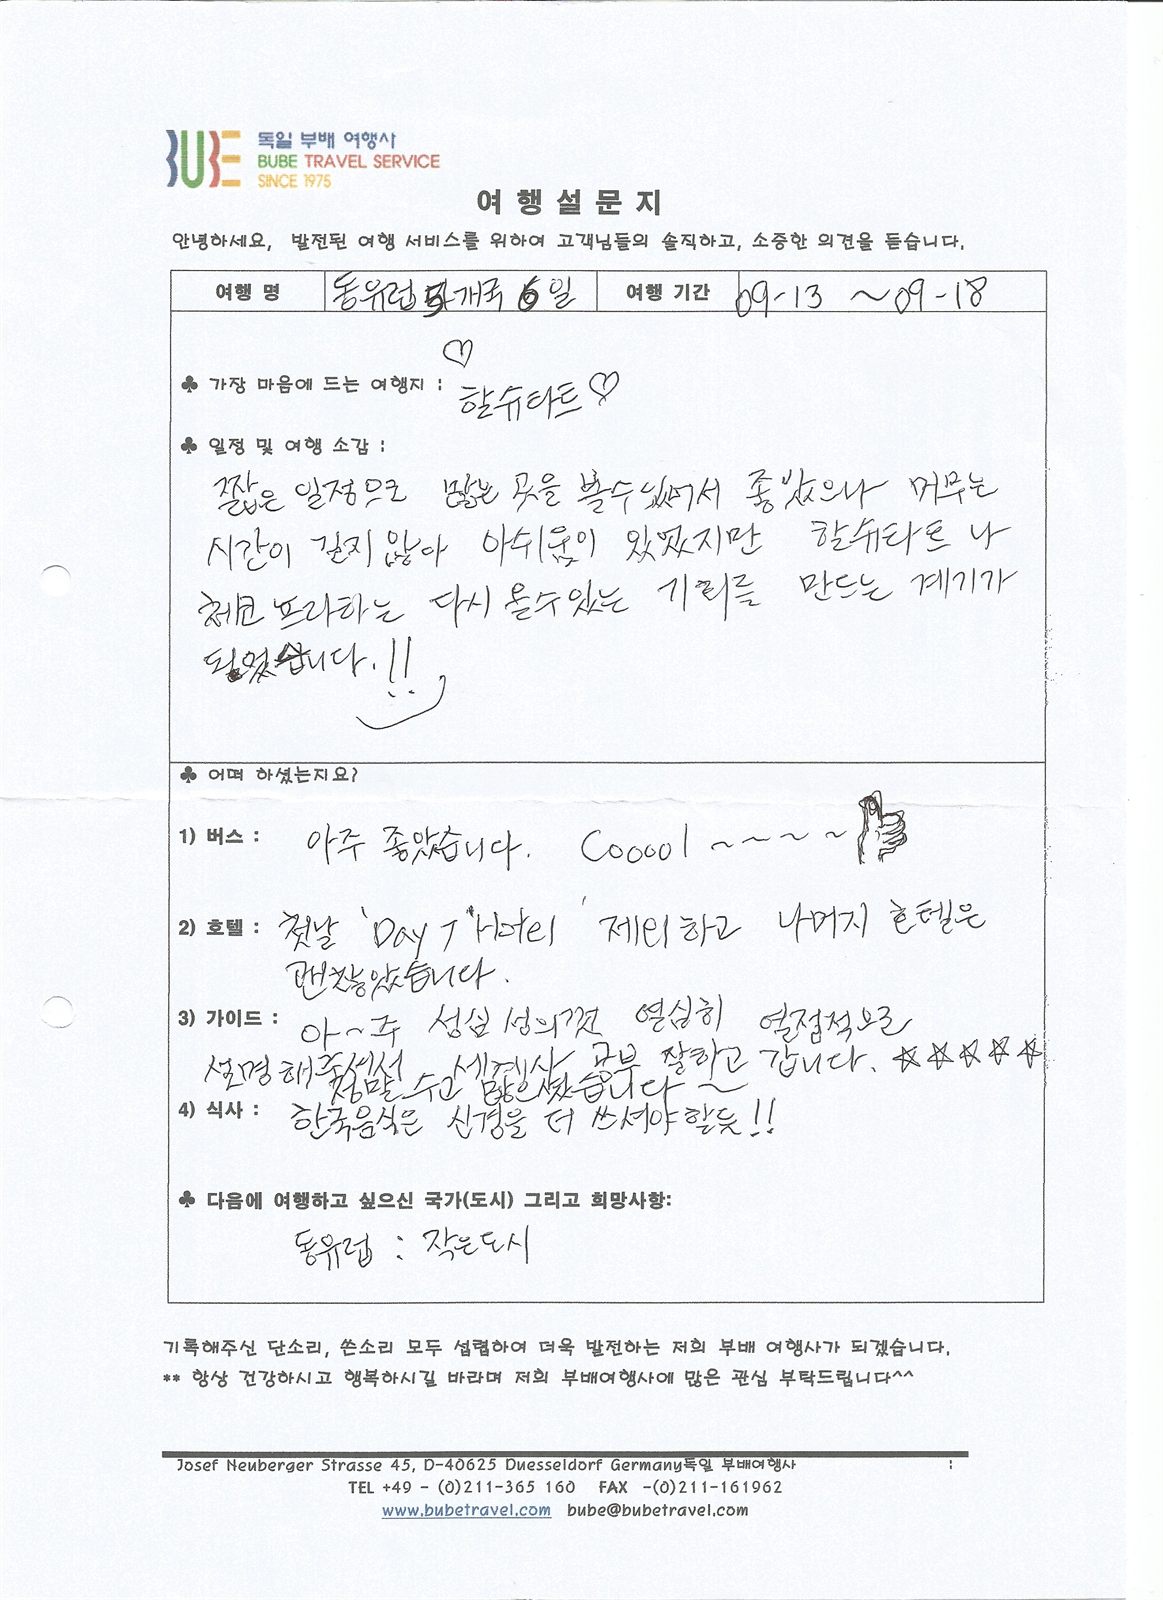 BUBE 독일 부배 여행사
BUBE TRAVEL SERVICE
SINCE 1975
여 행 설 문 지
안녕하세요, 발전된 여행 서비스를 위하여 고객님들의 솔직하고, 소중한 의견을 듣습니다.
여행 명 동유럽 5개국 6일 여행 기간 09-13 ~09-18
♣ 가장 마음에 드는 여행지 : 할슈타트♡
♣ 일정 및 여행 소감 :
짧은 일정으로 많은 곳을 볼수있어서 좋았으나 머무는
시간이 길지 않아 아쉬움이 있었지만 할슈타트나
체코 프라하는 다시 올수있는 기회를 만드는 계기가
되었습니다.!!
♣ 어떠 하셨는지요?
1) 버스 : 아주 좋았습니다. Cooool ~~~~
2) 호텔 : 첫날 'Day 7 Hotel' 제외하고 나머지 호텔은
괜찮았습니다.
3) 가이드 : 아~주 성심 성의껏 열심히 열정적으로
설명해주셔서 세계사 공부 잘하고 갑니다. ☆☆☆☆☆
정말 수고 많으셨습니다~
4) 식사 : 한국음식은 신경을 더 쓰셔야할듯!!
♣ 다음에 여행하고 싶으신 국가(도시) 그리고 희망사항:
동유럽 : 작은도시
기록해주신 단소리, 쓴소리 모두 섭렵하여 더욱 발전하는 저희 부배 여행사가 되겠습니다.
** 항상 건강하시고 행복하시길 바라며 저희 부배여행사에 많은 관심 부탁드립니다^^
Josef Neuberger Strasse 45, D-40625 Duesseldorf Germany독일 부배여행사 :
TEL +49 - (0)211-365 160 FAX -(0)211-161962
www.bubetravel.com bube@bubetravel.com